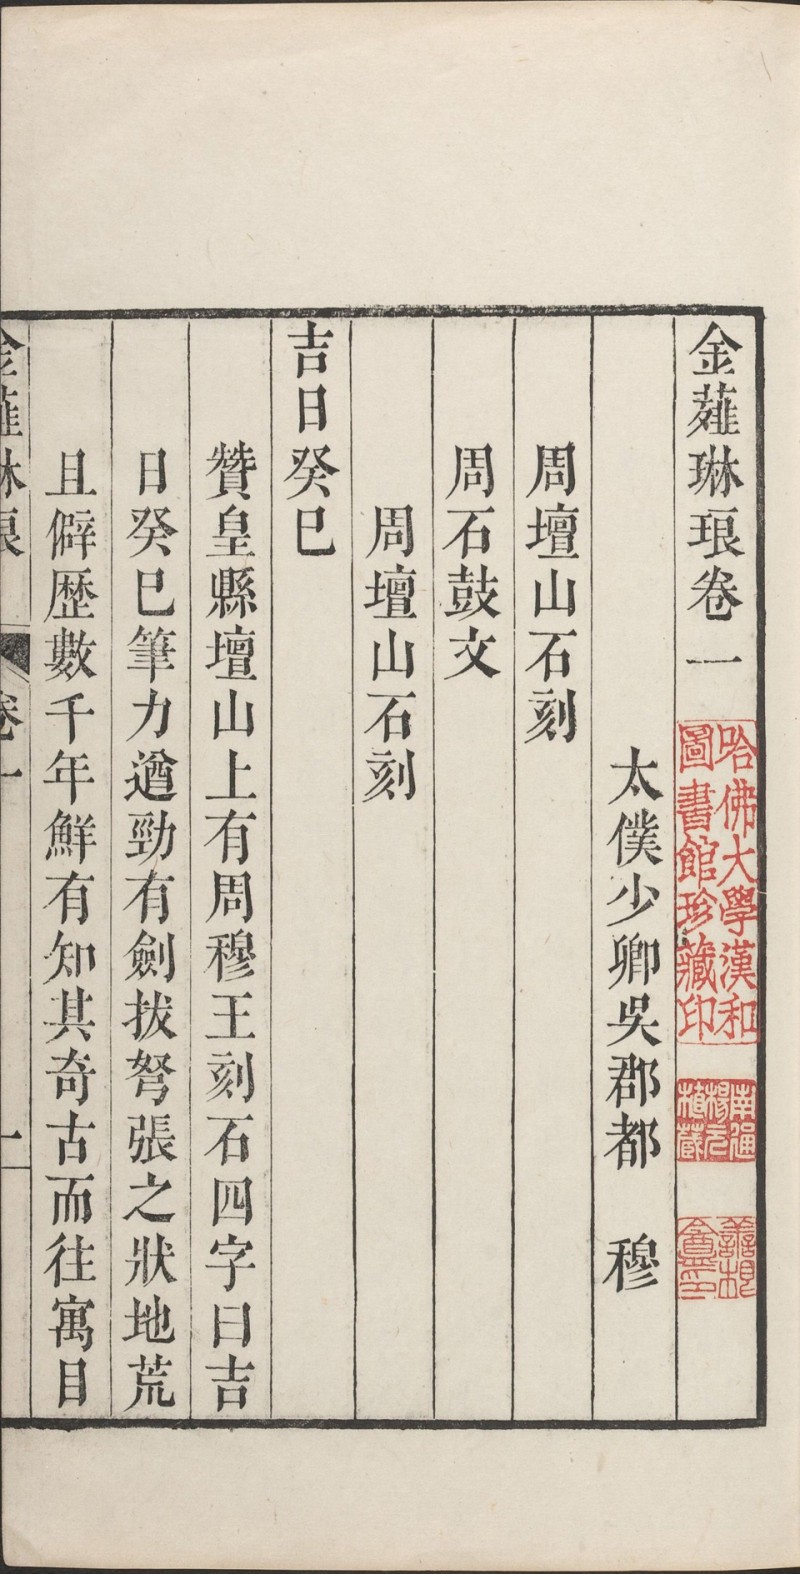 金薤琳琅卷一
哈佛大學漢和
圖書館珍藏印
太僕少卿吳郡都　穆
周壇山石刻
周石鼓文
周壇山石刻
吉日癸巳
贊皇縣壇山上有周穆王刻石四字曰吉
日癸巳筆力遒勁有劍拔弩張之狀地荒
且僻歷數千年鮮有知其奇古而往寓目
金薤琳琅　卷一　一